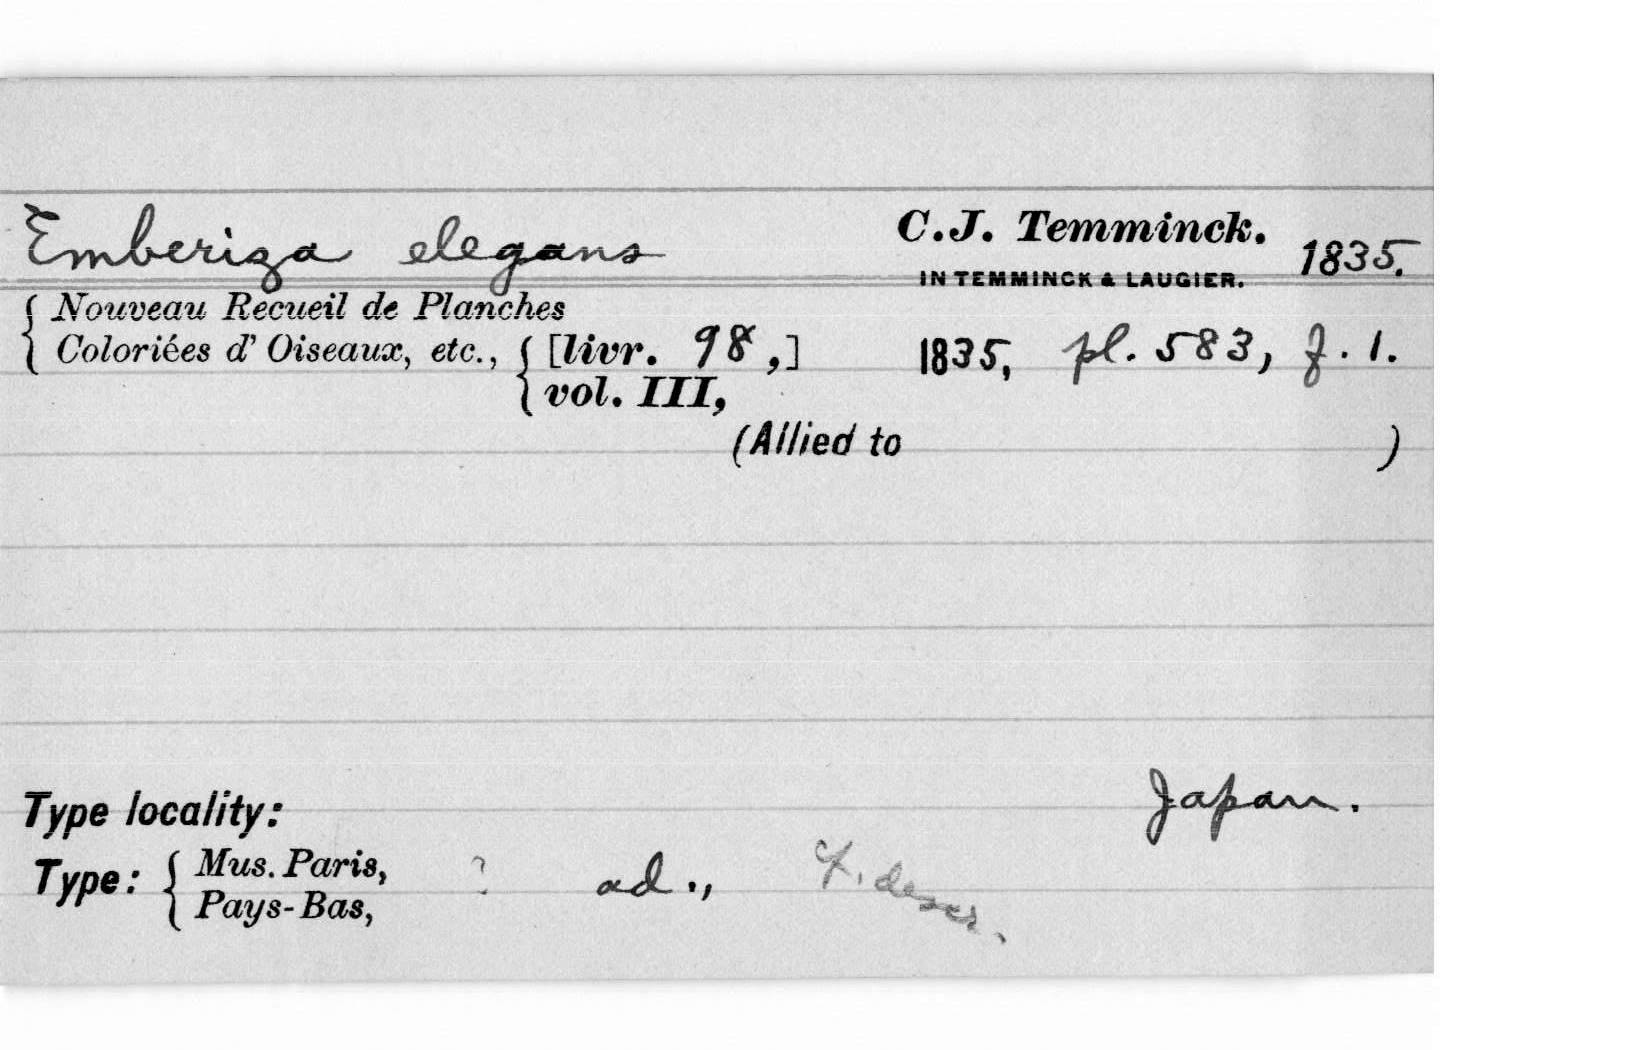 Emberiza elegans C.J. Temminck. 1835.
IN TEMMINCK & LAUGIER.
{ Nouveau Recueil de Planches
Coloriées d' Oiseaux, etc., { [livr. 98,] 1835, pl. 583, f. 1.
vol. III,
(Allied to )
Type locality: Japan.
Type: { Mus. Paris, ? ad.,
Pays-Bas,
descr.